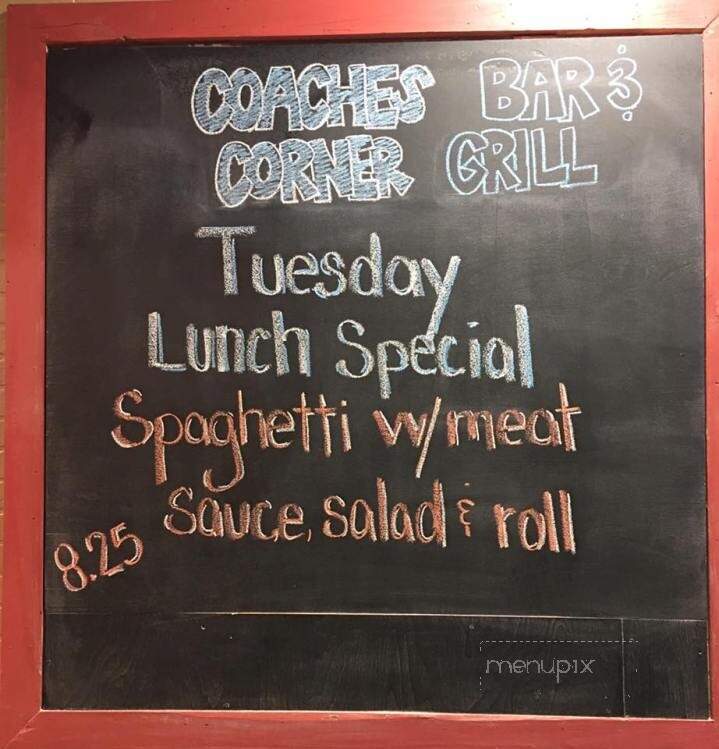 COACHES BAR &
CORNER GRILL
Tuesday
Lunch Special
Spaghetti w/meat
Sauce, salad & roll
8.25
menupix